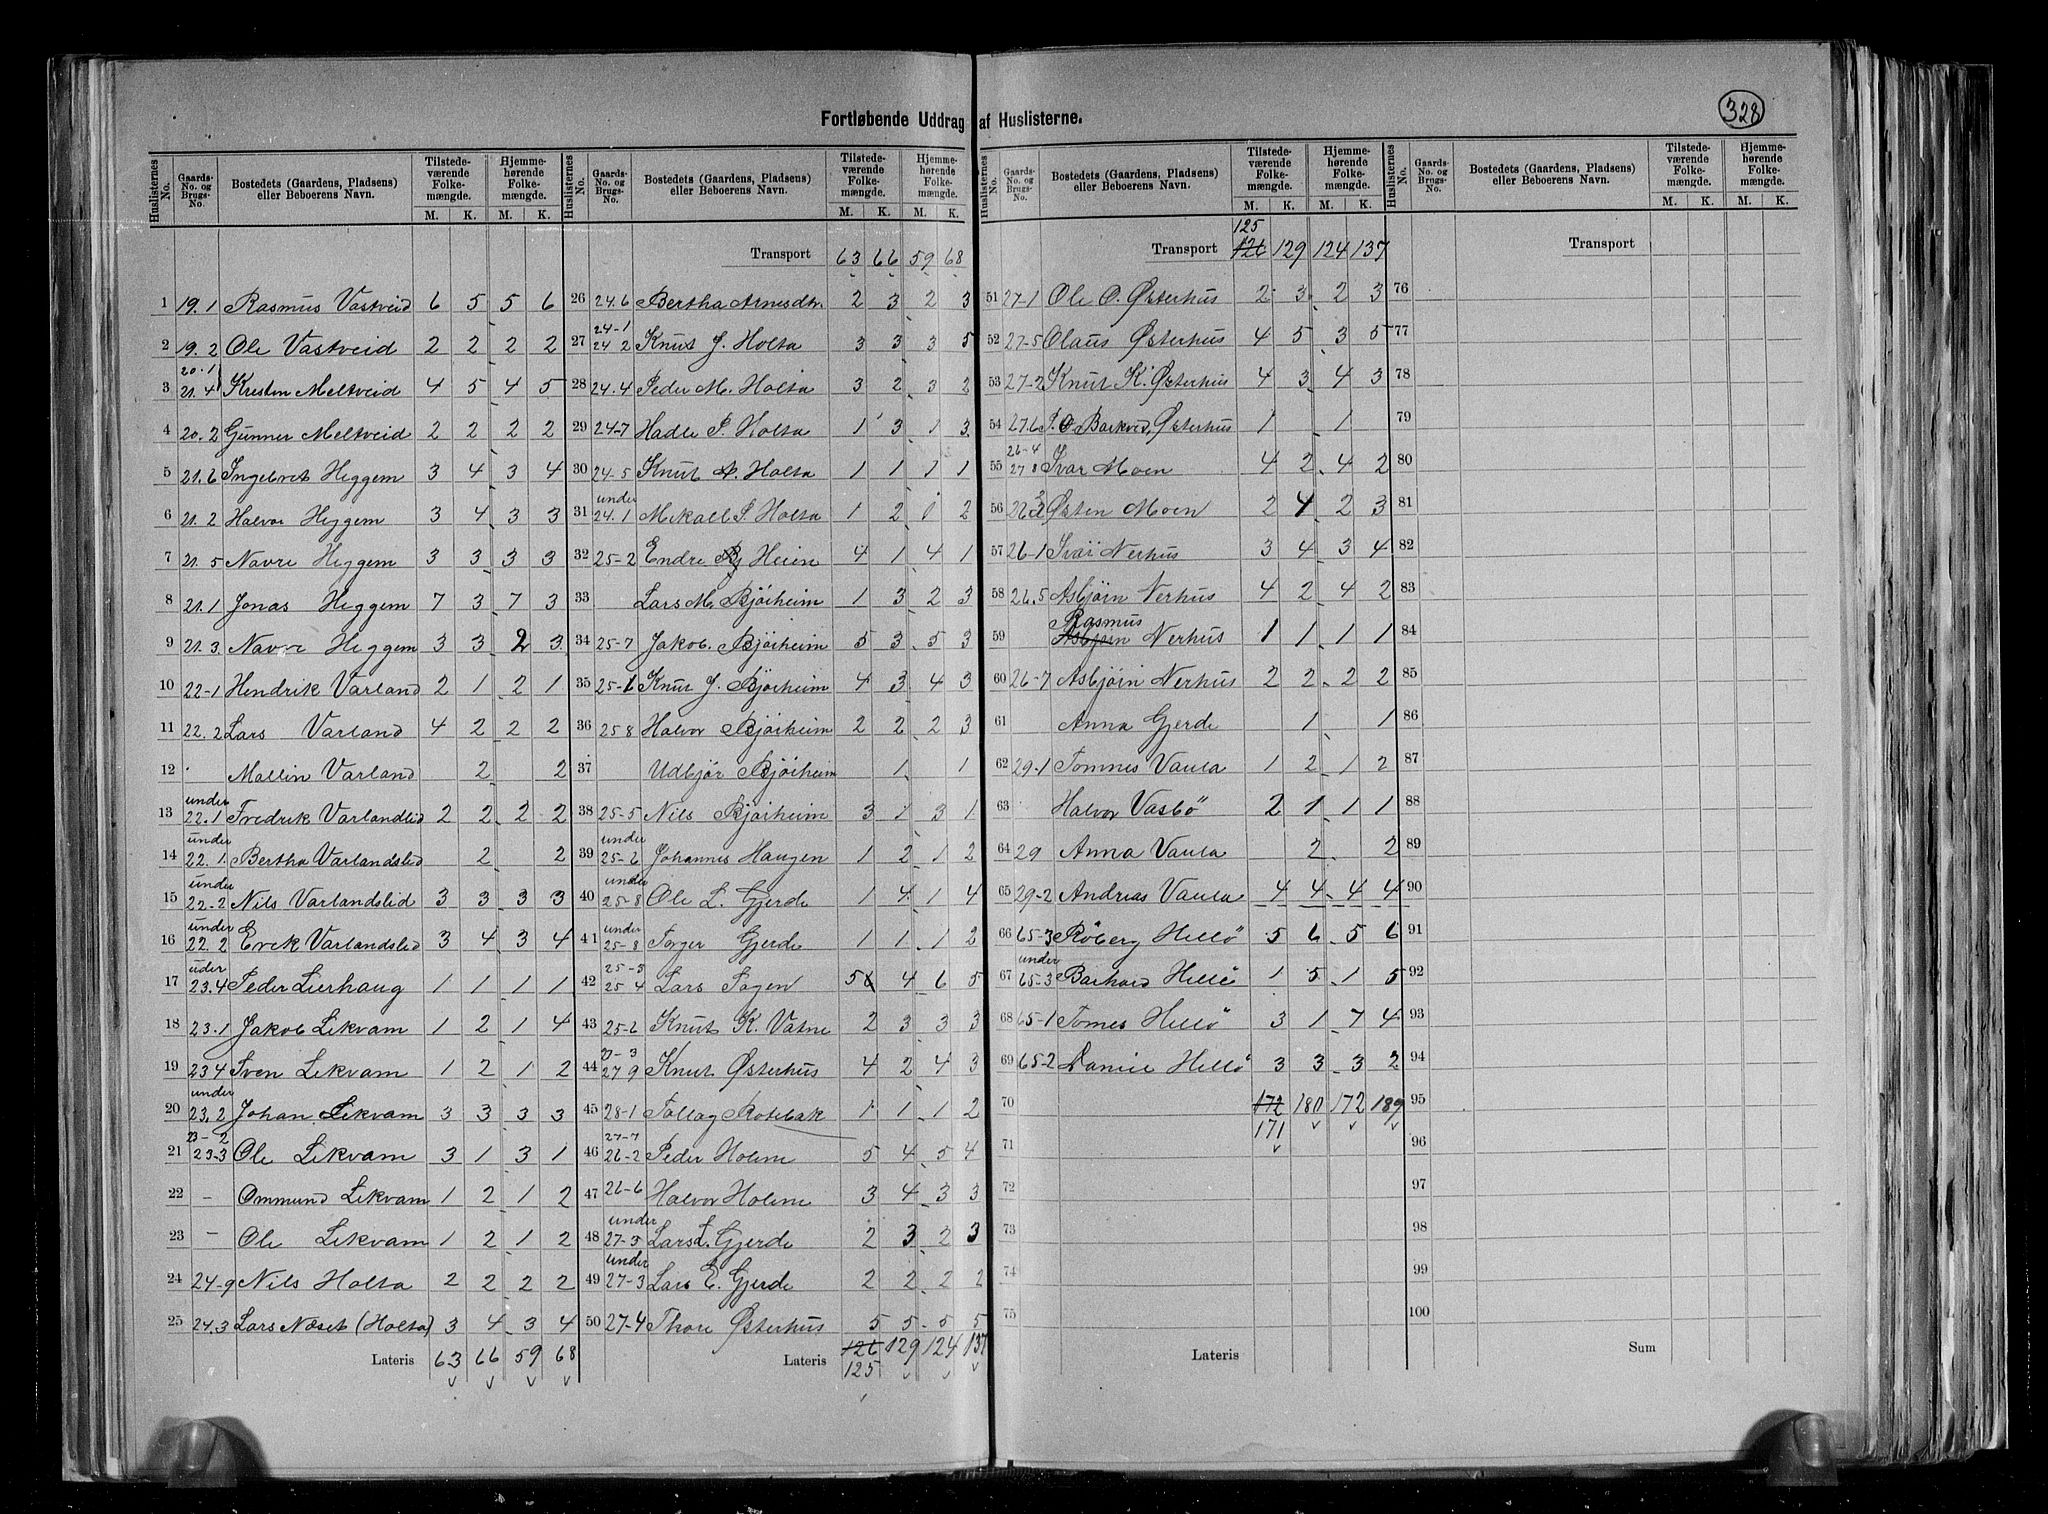 328
Fortløbende Uddrag af Huslisterne.
Huslisternes No. Gaards-No. og Brugs-No. Bostedets (Gaardens, Pladsens) eller Beboerens Navn. Tilstedeværende Folkemængde. Hjemmehørende Folkemængde.
M. K. M. K.
1 19.1 Rasmus Vastveid 6 5 5 6
2 19.2 Ole Vastveid 2 2 2 2
3 20.1 21.4 Kresten Meltveid 4 5 4 5
4 20.2 Gunner Meltveid 2 2 2 2
5 21.6 Ingebret Heggem 3 4 3 4
6 21.2 Halvor Heggem 3 4 3 3
7 21.5 Navre Heggem 3 3 3 3
8 21.1 Jonas Heggem 7 3 7 3
9 21.3 Navre Heggem 3 3 2 3
10 22-1 Hendrik Varland 2 1 2 1
11 22.2 Lars Varland 4 2 2 2
12 Mallin Varland 2 2
13 under 22.1 Fredrik Varlandlid 2 2 2 2
14 under 22.1 Bertha Varlandslid 2 2
15 under 22-2 Nils Varlandslid 3 3 3 3
16 under 22.2 Erek Varlandslid 3 4 3 4
17 uder 23.4 Peder Lierhaug 1 1 1 1
18 23.1 Jakob Lekvam 1 2 1 4
19 234 Sven Lekvam 1 2 1 2
20 under 23.2 Johan Lekvam 3 3 3 3
21 23-2 23-3 Ole Lekvam 3 1 3 1
22 - Ommund Lekvam 1 2 1 2
23 - Ole Lekvam 1 2 1 2
24 24-9 Nils Holta 2 2 2 2
25 24.3 Lars Næset (Holta) 3 4 3 4
Lateris 63 66 59 68
Huslisternes No. Gaards-No. og Brugs-No. Bostedets (Gaardens, Pladsens) eller Beboerens Navn. Tilstedeværende Folkemængde. Hjemmehørende Folkemængde.
M. K. M. K.
Transport 63 66 59 68
26 24.6 Bertha Arnesdtr. 2 3 2 3
27 24-1 24 2 Knut J. Holta 3 3 3 5
28 24.4 Peder M. Holta 3 2 3 2
29 24-7 Hadle P. Holta 1 3 1 3
30 24-5 Knut Holta 1 1 1 1
31 under 24.1 Mekall S. Holta 1 2 1 2
32 25-2 Endre Heien 4 1 4 1
33 Lars M. Bjøiheim 1 3 2 3
34 25-7 Jakob. Bjøiheim 5 3 5 3
35 25-1 Knut J. Bjøiheim 4 3 4 3
36 25 8 Halvor Bjøiheim 2 2 2 3
37 Udbjør Bjøiheim 1 1
38 25-5 Nils Bjøiheim 3 1 3 1
39 under 25-6 Johannes Haugen 1 2 1 2
40 under 25-8 Ole L. Gjerde 1 4 1 4
41 under 25-8 Torger Gjerde 1 1 1 2
42 25-3 25 4 Lars Fagen 5 4 6 5
43 25-6 Knut K. Vatne 2 3 3 3
44 27-9 Knut Østerhus 4 2 4 3
45 28-1 Tallag Rotebak 1 1 1 2
46 27-7 26-2 Peder Holme 5 4 5 4
47 26-6 Halvor Holme 3 4 3 3
48 under 27-3 Lars L. Gjerde 2 3 2 3
49 under 27-3 Lars E. Gjerde 2 2 2 2
50 27-4 Thore Østerhus 5 5 5 5
Lateris 126 129 124 137
125
Huslisternes No. Gaards-No. og Brugs-No. Bostedets (Gaardens, Pladsens) eller Beboerens Navn. Tilstedeværende Folkemængde. Hjemmehørende Folkemængde.
M. K. M. K.
125
Transport 126 129 124 137
51 27-1 Ole O. Østerhus 2 3 2 3
52 27-5 Olaus Østerhus 4 5 3 5
53 27-2 Knut K. Østerhus 4 3 4 3
54 27.6 Barkved, Østerhus 1 1
55 26-4 27 8 Ivar Moen 4 2 4 2
56 Østen Moen 2 4 2 3
57 26-1 Ivar Nerhus 3 4 3 4
58 26.5 Asbjøin Nerhus 4 2 4 2
Rasmus
59 Asbjøen Nerhus 1 1 1 1
60 26-7 Asbjøin Nerhus 2 2 2 2
61 Anna Gjerde 1 1
62 29-1 Tommes Vaula 1 2 1 2
63 Halvor Vasbö 2 1 1 1
64 29 Anna Vaula 2 2
65 29-2 Andreas Vaula 4 4 4 4
66 65-3 Røberg Hellö 5 6 5 6
67 under 65-3 Barhard Hellö 1 5 1 5
68 65-1 Tomes Hellö 3 1 7 4
69 65-2 Daniel Hellö 3 3 3 2
70 172 180 172 189
171
71
72
73
74
75
Lateris
Huslisternes No. Gaards-No. og Brugs-No. Bostedets (Gaardens, Pladsens) eller Beboerens Navn. Tilstedeværende Folkemængde. Hjemmehørende Folkemængde.
M. K. M. K.
Transport
76
77
78
79
80
81
82
83
84
85
86
87
88
89
90
91
92
93
94
95
96
97
98
99
100
Sum